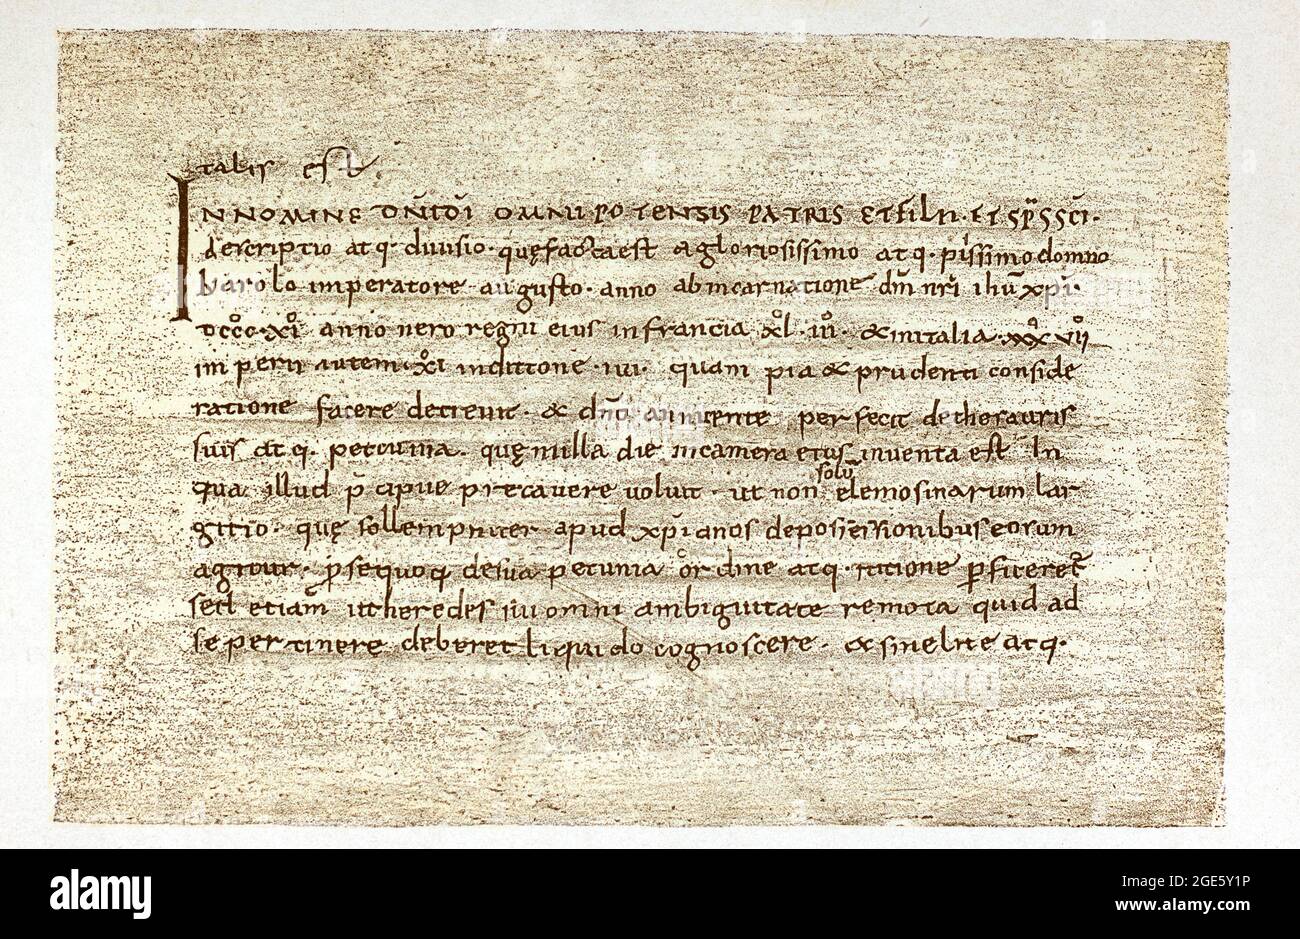 talis est
IN NOMINE DNI DI OMNIPOTENSIS PATRIS ET FILII · ET SPS SCI ·
descriptio atq · diuisio · quę facta est a gloriosissimo atq · piissimo domno
karolo imperatore augusto · anno ab incarnatione dni nri ihu xpi ·
DCCCXI anno uero regni eius in francia XL · IIII · & in italia · XXXVII
imperii autem · XI indictione · IIII · quam pia & prudenti conside
ratione facere decreuit · & dno annuente perfecit de thesauris
suis atq · pecunia · quę in illa die in camera eius inuenta est In
qua illud p̄cipue precauere uoluit · ut non solū elemosinarum lar
gitio · quę sollempniter apud xp̄ianos de possessionibus eorum
agitur · p̄ se quoq de sua pecunia ordine atq · ratione p̄ficeret
sed etiam ut heredes sui omni ambiguitate remota quid ad
se pertinere deberet liquido cognoscere · &
alamy
Image ID: 2GE5Y1P
www.alamy.com